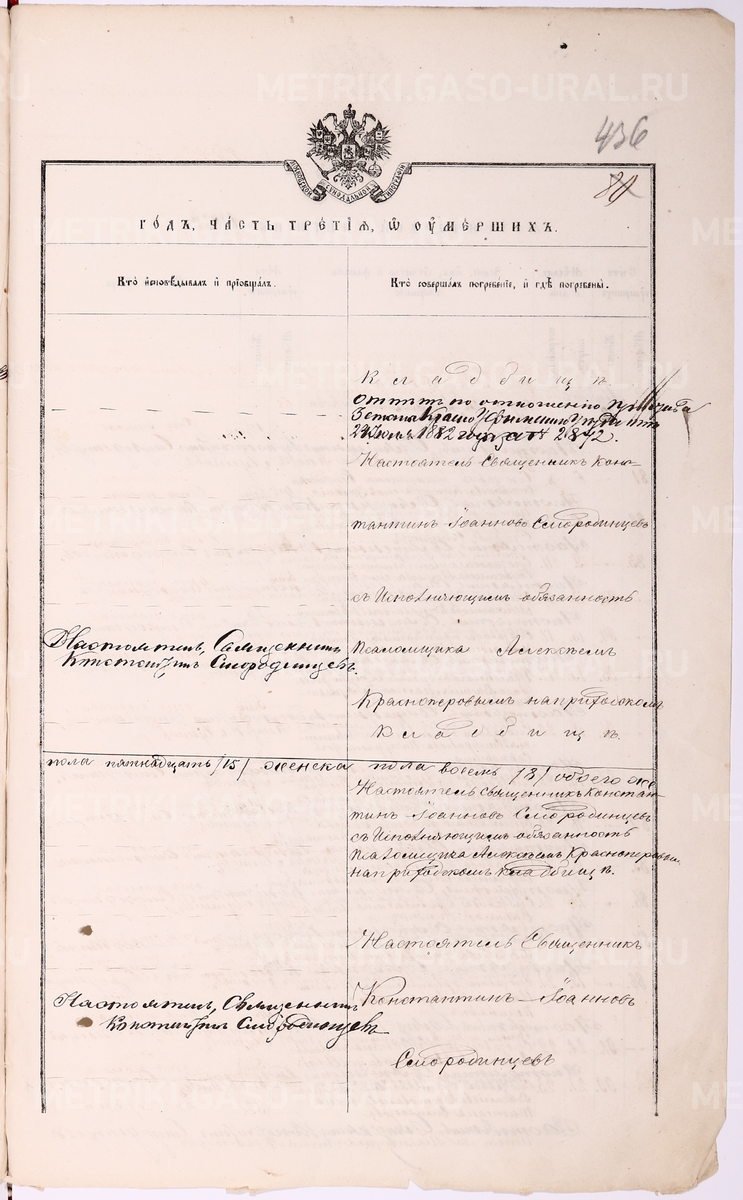 METRIKI.GASO-URAL.RU
436
80
МОСКОВСКОЙ СѴНОДАЛЬНОЙ ТИПОГРАФІИ
ГОДЪ, ЧАСТЬ ТРЕТІѦ, Ѡ ОУМЕРШИХЪ.
Кто исповѣдывалъ и пріобщалъ.
Кто совершалъ погребеніе, и гдѣ погребены.
кладбищѣ.
по отношенію
3 стана Красноуфимскаго
24 Июля 1882 года за № 2872.
Настоятель Священникъ Конс-
тантинъ Іоанновъ Смородинцевъ
съ Исполняющимъ обязанность
Настоятель, Священникъ
Константинъ Смородинцевъ.
Псаломщика Алексѣемъ
Красноперовымъ на приходскомъ
кладбищѣ.
пола пятнадцать /15/ женска пола восемь /8/ обоего же
Настоятель Священникъ Констан-
тинъ Іоанновъ Смородинцевъ
съ Исполняющимъ обязанность
Псаломщика Алексѣемъ Красноперовым
на приходскомъ кладбищѣ.
Настоятель Священникъ
Настоятель, Священникъ
Константинъ Смородинцевъ
Константинъ Іоанновъ
Смородинцевъ